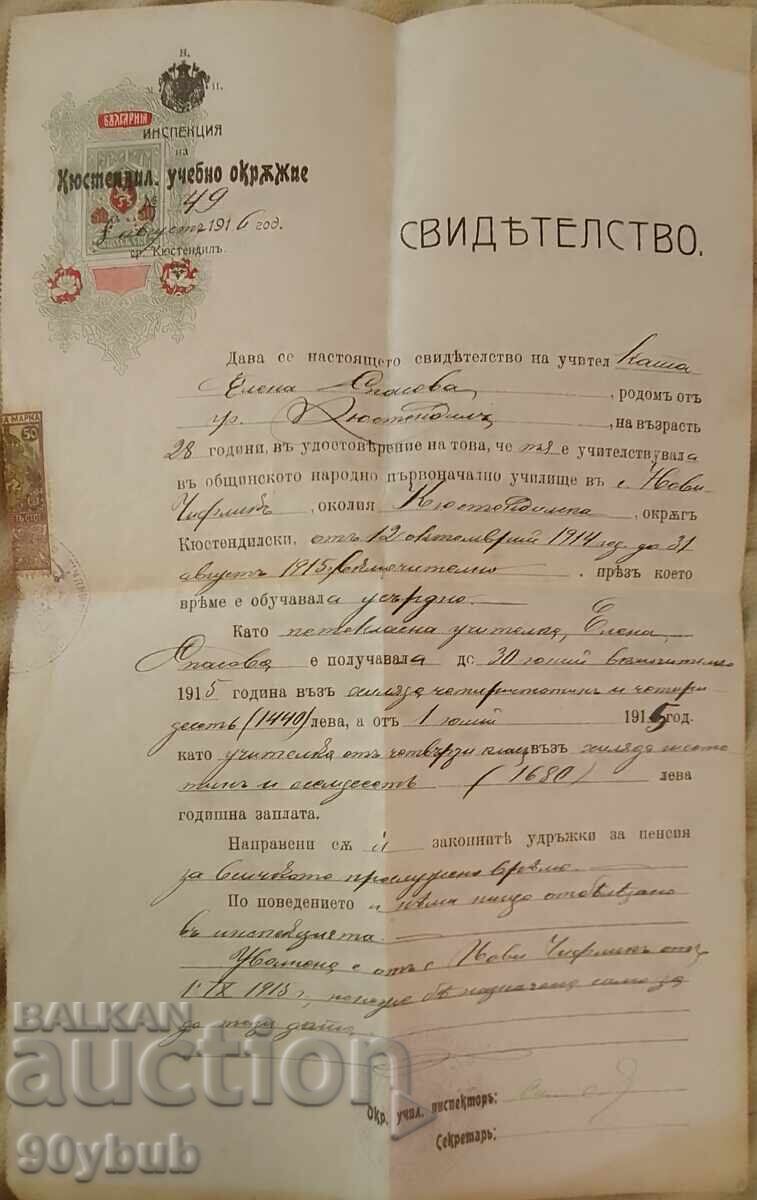 Н.
М. П.
БЪЛГАРИЯ
ИНСПЕКЦИЯ
на
Кюстендил. учебно окрѫжие
№ 49
8 августъ 1916 год.
гр. Кюстендилъ.
СВИДѢТЕЛСТВО.
Дава се настоящето свидѣтелство на учител ката
Елена Спасова, родомъ отъ
гр. Кюстендилъ, на възрасть
28 години, въ удостовѣрение на това, че тя е учителствувала
въ общинското народно първоначално училище въ с. Нови-
Чифликъ, околия Кюстендилска, окрѫгъ
Кюстендилски, отъ 12 октомврий 1914 год. до 31
августъ 1915 включително, прѣзъ което
врѣме е обучавала усърдно.
Като петокласна учителка, Елена
Спасова е получавала до 30 юний включително
1915 година възъ хиляда четиристотинъ и четири-
десеть (1440) лева, а отъ 1 юлий 1915 год.
като учителка отъ четвърти класъ възъ хиляда шесто-
тинъ и осемдесеть (1680) лева
годишна заплата.
Направени сѫ ѝ законнитѣ удръжки за пенсия
за всичкото прослужено врѣме.
По поведението ѝ нѣма нищо отбелѣзано
въ инспекцията.
Уволнена е отъ с. Нови Чифликъ отъ
1 IX 1915 г., понеже бѣ назначена само за
до тази дата.
Окр. учил. инспекторъ:
Секретарь:
ВА МАРКА
50
BALKAN
auction
90ybub